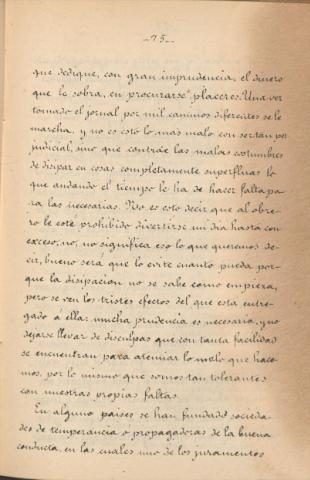 -75-
que dedique, con gran imprudencia, el dinero
que le sobra, en procurarse placeres. Una vez
tomado el jornal por mil caminos diferentes se le
marcha, y no es esto lo más malo con ser tan per
judicial, sino que contráe las malas costumbres
de disipar en cosas completamente superfluas lo
que andando el tiempo le ha de hacer falta pa-
ra las necesarias. No es esto decir que al obre-
ro le esté prohibido divertirse un dia hasta con
exceso; no, no significa eso lo que queremos de-
cir, bueno será que lo evite cuanto pueda por-
que la disipacion no se sabe como empieza,
pero se ven los tristes efectos del que esta entre-
gado á ella: mucha prudencia es necesaria, y no
dejarse llevar de disculpas que con tanta facilidad
se encuentran para atenuar lo malo que hace-
mos, por lo mismo que somos tan tolerantes
con nuestras propias faltas.
En algunos paises se han fundado socieda-
des de temperancia ó propagadoras de la buena
conducta, en las cuales uno de los juramentos